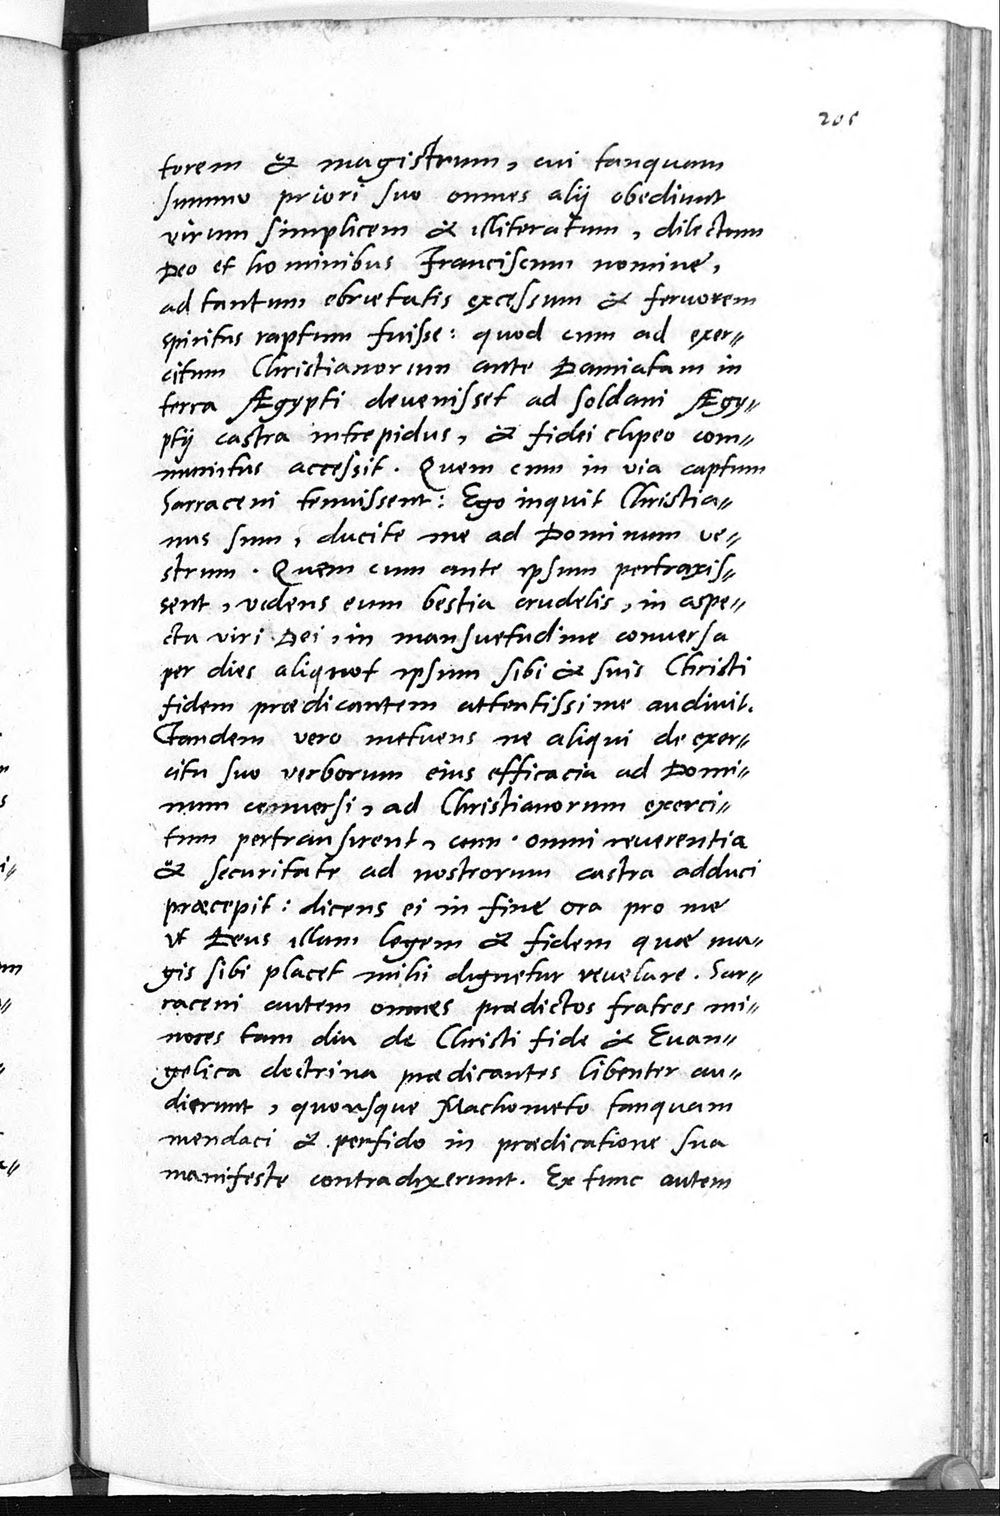 205
torem & magistrum, cui tanquam
summo priori suo omnes alij obediunt
virum simplicem & illiteratum, dilectum
Deo et hominibus Franciscum nomine,
ad tantum ebrietatis excessum & fervorem
spiritus raptum fuisse: quod cum ad exer„
citum Christianorum ante Damiatam in
terra Ægypti devenisset ad soldani Ægy„
ptij castra intrepidus, & fidei clipeo com„
munitus accessit. Quem cum in via captum
Sarraceni tenuissent: Ego inquit Christia„
nus sum, ducite me ad Dominum ve„
strum. Quem cum ante ipsum pertraxis„
sent, videns eum bestia crudelis, in aspe„
ctu viri Dei, in mansuetudine conversa
per dies aliquot ipsum sibi & suis Christi
fidem prædicantem attentissime audivit.
Tandem vero metuens ne aliqui de exer„
citu suo verborum eius efficacia ad Domi„
num conversi, ad Christianorum exerci„
tum pertransirent, cum omni reuerentia
& securitate ad nostrorum castra adduci
præcepit: dicens ei in fine ora pro me
ut Deus illam legem & fidem quæ ma„
gis sibi placet mihi dignetur reuelare. Sar„
raceni autem omnes prædictos fratres mi„
nores tam diu de Christi fide & Euan„
gelica doctrina prædicantes libenter au„
dierunt, quousque Machometo tanquam
mendaci & perfido in prædicatione sua
manifeste contradixerunt. Ex tunc autem